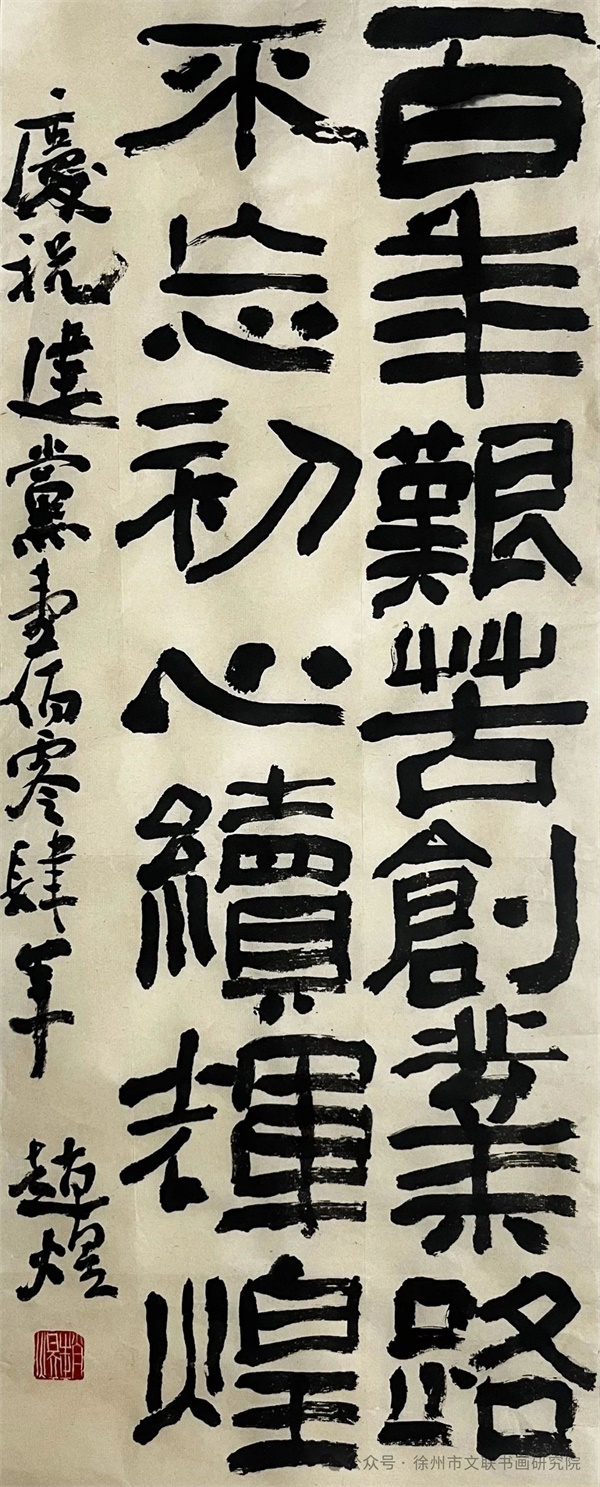 百年艱苦創業路
不忘初心續輝煌
慶祝建黨壹佰零肆年
趙煜
公众号·徐州市文联书画研究院